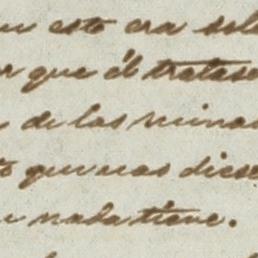 esto era sol
que él tratase
de las minas
que nos diese
nada tiene.